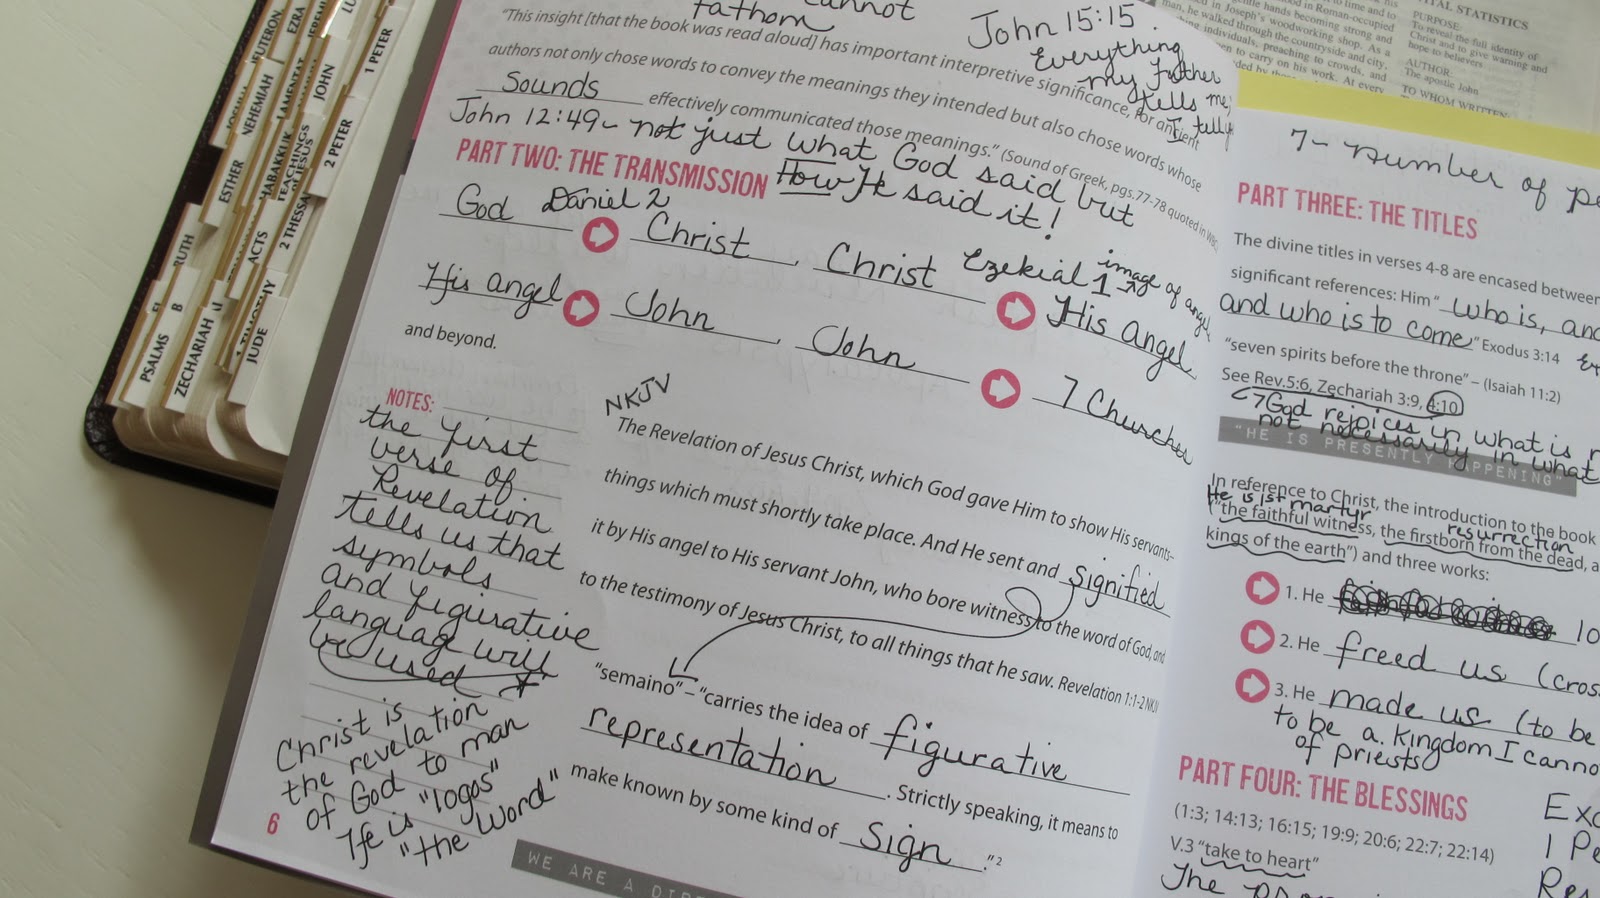 JOSHUA
EZRA
NEHEMIAH
LAMENTAT
JOHN
1 PETER
2 PETER
ESTHER
HABAKKUK
TEACHINGS
of JESUS
2 THESSA
RUTH
ACTS
PSALMS
ZECHARIAH
JUDE
cannot
fathom
John 15:15
Everything
my father
tells me,
I fully
"This insight [that the book was read aloud] has important interpretive significance, for ancient
authors not only chose words to convey the meanings they intended but also chose words whose
Sounds effectively communicated those meanings." (Sound of Greek, pgs.77-78 quoted in
John 12:49 ~ not just what God said but
How He said it!
PART TWO: THE TRANSMISSION
God Daniel 2 Christ, Christ Ezekial 1 image of angel His Angel
His angel John, John 7 Churches
and beyond.
NOTES:
the first
verse of
Revelation
tells us that
symbols
and figurative
language will
be used
Christ is
the revelation
of God to man
He is "logos"
"the Word"
6
NKJV
The Revelation of Jesus Christ, which God gave Him to show His servants–
things which must shortly take place. And He sent and signified
it by His angel to His servant John, who bore witness to the word of God, and
to the testimony of Jesus Christ, to all things that he saw. Revelation 1:1-2 NKJV
"semaino" – "carries the idea of figurative
representation. Strictly speaking, it means to
make known by some kind of Sign." 2
WE ARE A
VITAL STATISTICS
PURPOSE:
To reveal the full identity of
Christ and to give warning and
hope to believers
AUTHOR:
The apostle John
TO WHOM WRITTEN:
in Roman-occupied
in Joseph's woodworking shop. As a
he walked through the countryside and city,
individuals, preaching to crowds, and
to carry on his work. At every
7 ~ number of
PART THREE: THE TITLES
The divine titles in verses 4-8 are encased between
significant references: Him "who is, and
and who is to come" Exodus 3:14
"seven spirits before the throne" – (Isaiah 11:2)
See Rev.5:6, Zechariah 3:9, 4:10
God rejoices in what is
not necessarily in what
"HE IS PRESENTLY HAPPENING"
In reference to Christ, the introduction to the book
He is 1st martyr
resurrection
("the faithful witness, the firstborn from the dead,
kings of the earth") and three works:
1. He
2. He freed us
3. He made us (to be
to be a kingdom I
of priests
PART FOUR: THE BLESSINGS
(1:3; 14:13; 16:15; 19:9; 20:6; 22:7; 22:14)
V.3 "take to heart"
The